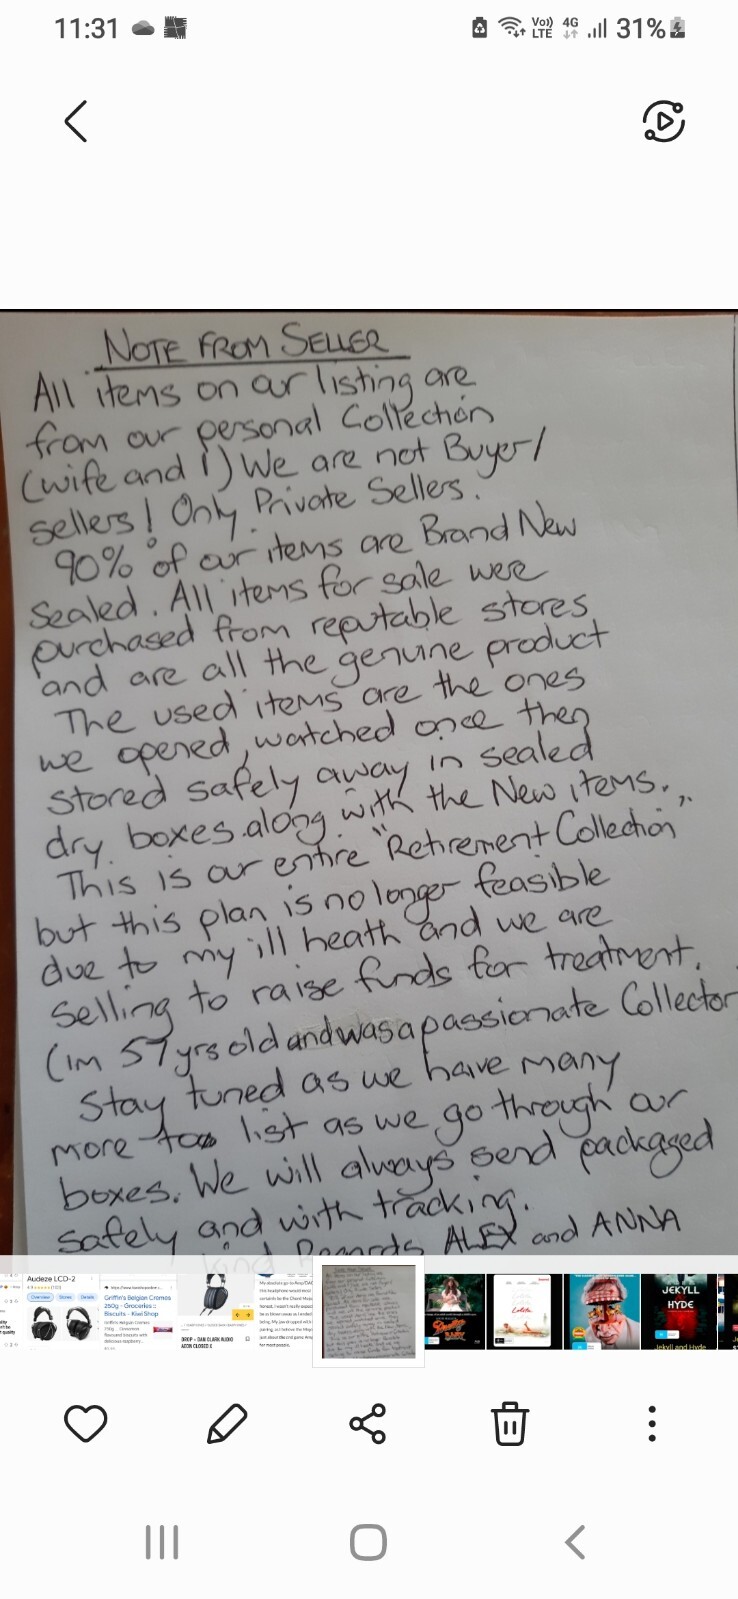 11:31
Vo)) LTE 4G 31%
NOTE FROM SELLER
All items on our listing are
from our personal Collection
(wife and I) We are not Buyer/
sellers! Only Private Sellers.
90% of our items are Brand New
Sealed. All items for sale were
purchased from reputable stores
and are all the genuine product
The used items are the ones
we opened, watched once then
stored safely away in sealed
dry boxes along with the New items.
This is our entire "Retirement Collection"
but this plan is no longer feasible
due to my ill heath and we are
selling to raise funds for treatment.
(im 57 yrs old and was a passionate Collector
Stay tuned as we have many
more to list as we go through our
boxes. We will always send packaged
safely and with tracking.
kind Regards ALEX and ANNA
Audeze LCD-2
Griffin's Belgian Cremes
250g - Groceries ::
Biscuits - Kiwi Shop
DROP + DAN CLARK AUDIO
AEON CLOSED X
Lolita
JEKYLL
HYDE
Jekyll and Hyde